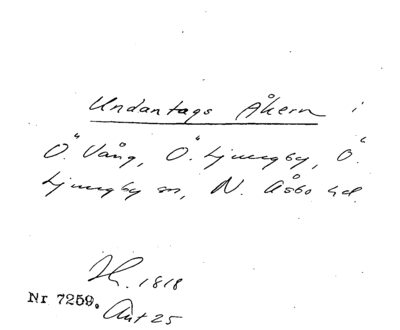 Undantags Åkern i
Ö. Vång, Ö. Ljungby, Ö.
Ljungby sn, N. Åsbo hd.
H. 1818
Nr 7259. Akt 25